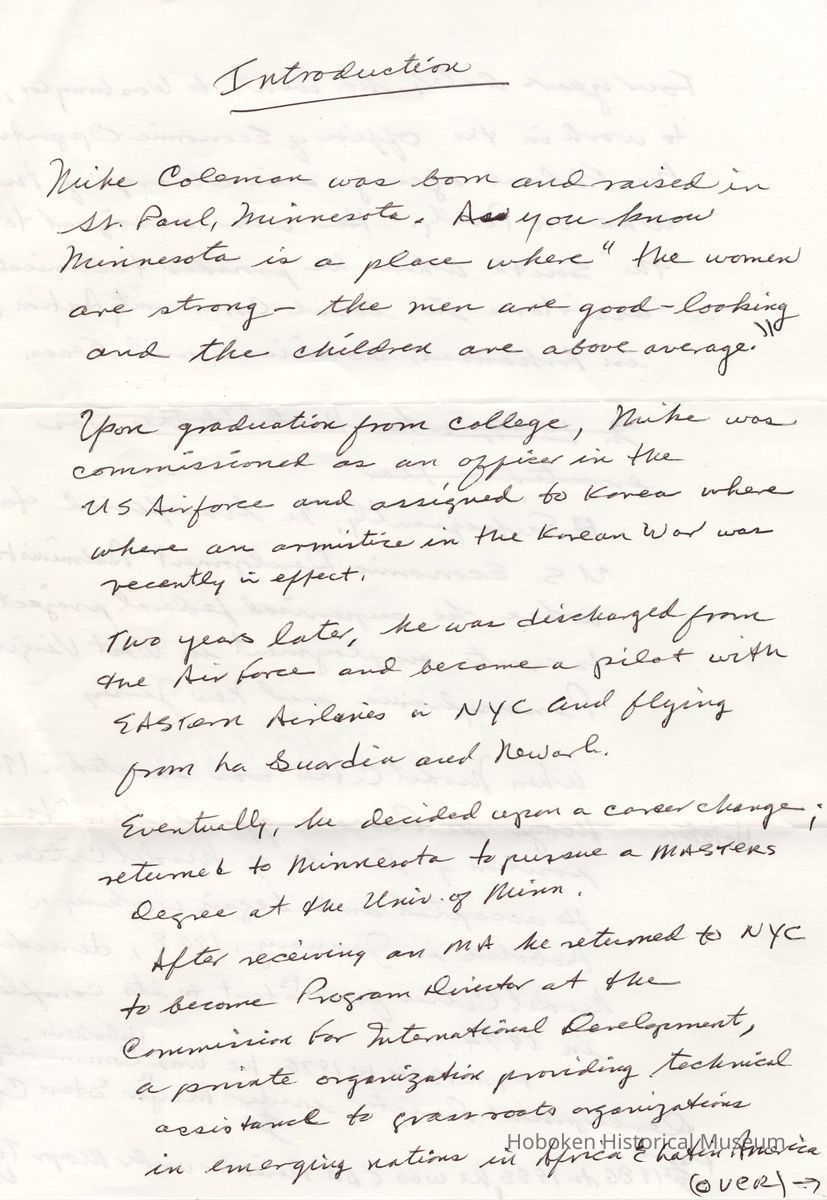 Introduction
Mike Coleman was born and raised in
St. Paul, Minnesota. As you know
Minnesota is a place where "the women
are strong - the men are good-looking
and the children are above average."
Upon graduation from college, Mike was
commissioned as an officer in the
US Airforce and assigned to Korea where
where an armistice in the Korean War was
recently in effect.
Two years later, he was discharged from
the Air Force and became a pilot with
EASTERN Airlines in NYC and flying
from La Guardia and Newark.
Eventually, he decided upon a career change;
returned to Minnesota to pursue a MASTERS
Degree at the Univ. of Minn.
After receiving an MA he returned to NYC
to become Program Director at the
Commission for International Development,
a private organization providing technical
assistance to grass roots organizations
in emerging nations in Africa & Latin America
(OVER) →
Hoboken Historical Museum